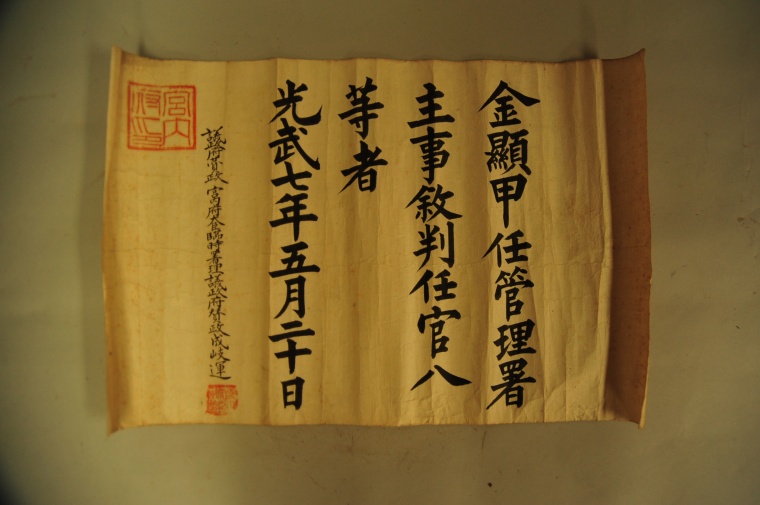 金顯甲任管理署
主事敘判任官八
等者
光武七年五月二十日
議政府贊政宮內府大臣臨時署理議政府贊政成岐運
宮內府印